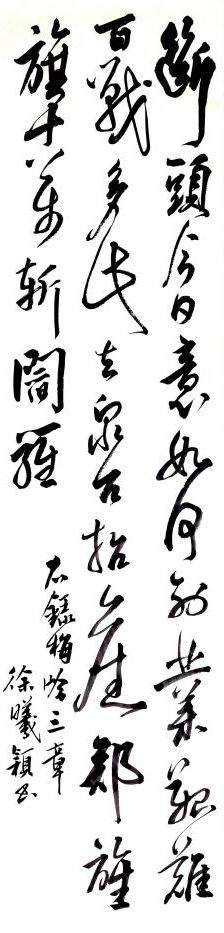 斷頭今日意如何創業艱難
百戰多此去泉台招舊部旌
旗十萬斬閻羅
右錄梅岭三章
徐曦穎書